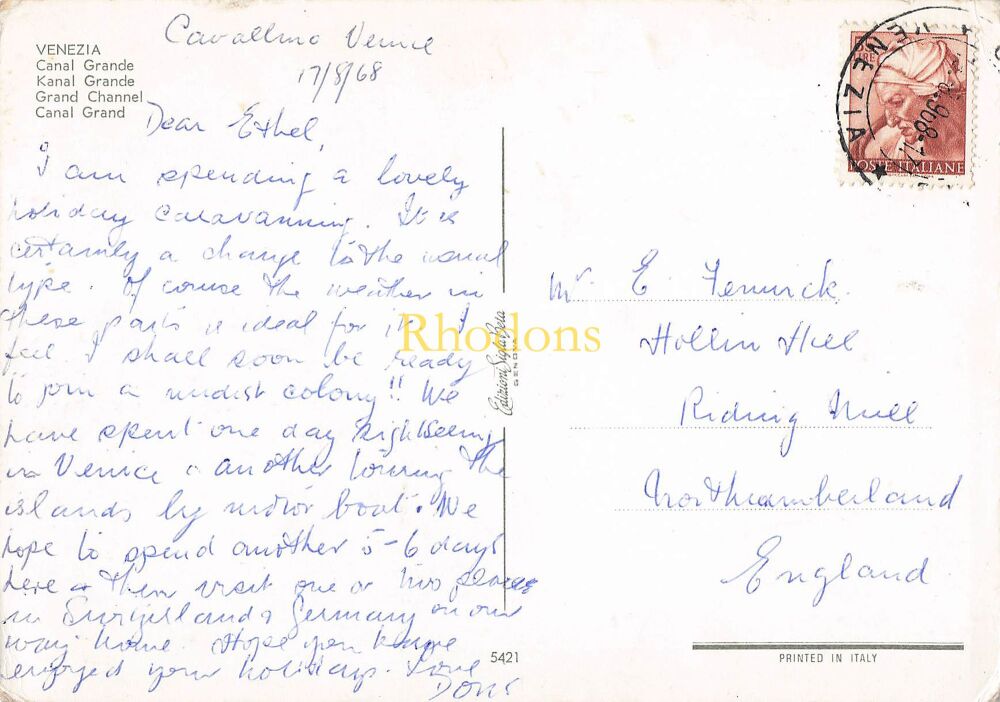 VENEZIA
Canal Grande
Kanal Grande
Grand Channel
Canal Grand
Cavallino Venice
17/8/68
Dear Ethel,
I am spending a lovely
holiday caravanning. It is
certainly a change to the usual
type. Of course the weather in
these parts is ideal for it. I
feel I shall soon be ready
to join a nudist colony!! We
have spent one day sightseeing
in Venice & another touring the
islands by motor boat. We
hope to spend another 5-6 days
here & then visit one or two places
in Switzerland & Germany on our
way home. Hope you have
enjoyed your holidays. Love
Doris
Rhodons
GENOVA
5421
LIRE
POSTE ITALIANE
VENEZIA
E. Fenwick.
Hollin Hill
Riding Mill
Northumberland
England
PRINTED IN ITALY